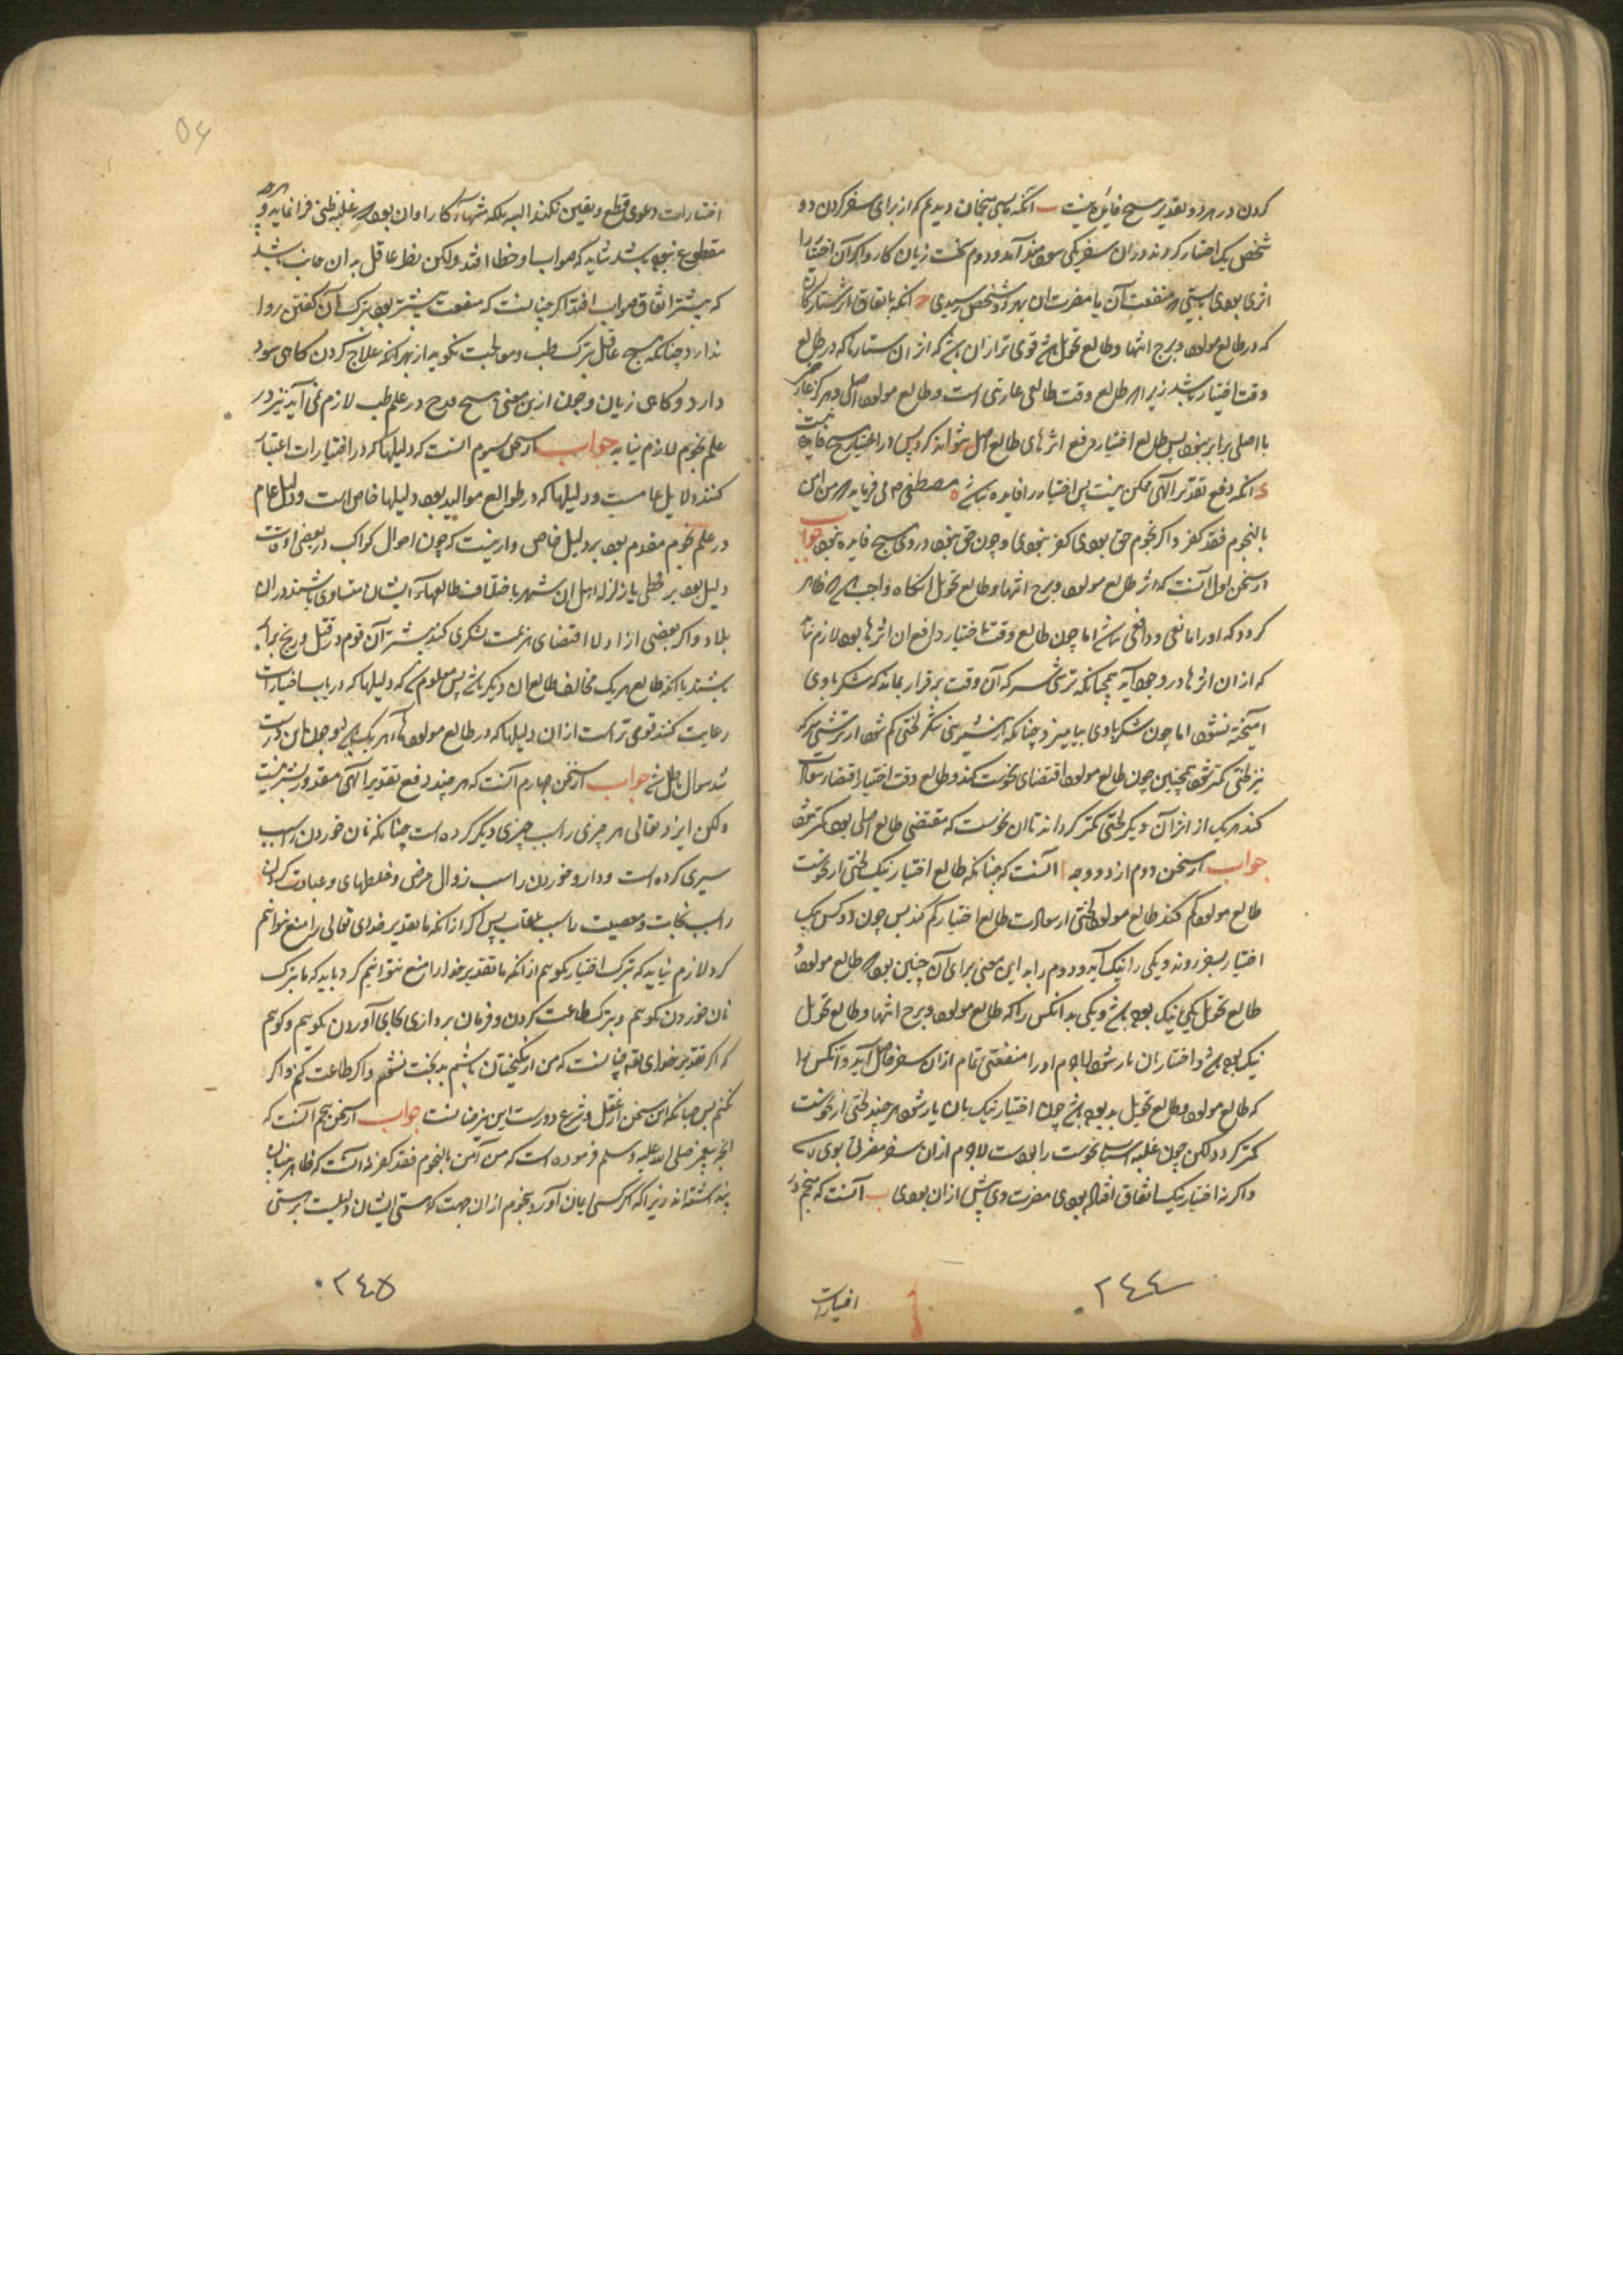 کردن در هر دو تقدیر هیچ فایل نیست ب آنکه بسی منجمان دیدیم که از برای سفر کردن دو
شخص یک اختیار کردند و در آن سفر یکی سودمند آمد و دوم سخت زیان کار و اگر آن اختیار را
اثری بودی بایستی که منفعت آن یا مضرت آن بهر دو شخص رسیدی ج آنکه باتفاق اثر ستارگان
که در طالع مولود و برج انتها و طالع تحویل باشد قوی تر از آن باشد که از آن ستارها که در طالع
وقت اختیار باشد زیرا که طالع وقت طالعی عاریتی است و طالع مولود اصلی و هرگز عاریتی
با اصلی برابر نبود پس طالع اختیار دفع اثرهای طالع اصل نتواند کرد پس در اختیار هیچ فایده نیست
د آنکه دفع تقدیر الهی ممکن نیست پس اختیار را فایده نباشد ه مصطفی ص می فرماید که من امن
بالنجوم فقد کفر و اگر نجوم حق بودی کفر نبودی و چون حق نبود در وی هیچ فایده نبود جواب
از سخن اول آنست که اثر طالع مولود و برج انتها و طالع تحویل آنگاه واجب باشد که ظاهر
گردد که او را مانعی و دافعی نباشد اما چون طالع وقت اختیار دافع آن اثرها بود لازم نیاید
که از آن اثرها در وجود آید همچنانکه ترشی سرکه آن وقت برقرار بماند که شکر با وی
آمیخته نشود اما چون شکر با وی بیامیزد چنانکه از شیرینی شکر لختی کم شود از ترشی سرکه
نیز لختی کمتر شود همچنین چون طالع مولود اقتضای نحوست کند و طالع وقت اختیار اقتضاء سعادت
کند هر یک از اثر آن دیگر لختی کمتر گرداند تا آن نحوست که مقتضی طالع اصلی بود کمتر شود
جواب از سخن دوم از دو وجه ا آنست که چنانکه طالع اختیار نیک لختی از نحوست
طالع مولود کم کند طالع مولود لختی از سعادت طالع اختیار کم کند پس چون دو کس بیک
اختیار بسفر روند و یکی را نیک آید و دوم را بد این معنی برای آن چنین بود که طالع مولود و
طالع تحویل یکی نیک بوده باشد و یکی بد آنکس را که طالع مولود و برج انتها و طالع تحویل
نیک بوده باشد و اختیار با آن یار شود لاجرم او را منفعتی تمام از آن سفر حاصل آید و آنکس را
که طالع مولود و طالع تحویل بد بوده باشد چون اختیار نیک با آن یار شود هر چند لختی از نحوست
کمتر گردد لکن چون غلبه اسباب نحوست را بودست لاجرم از آن سفر مضرتی بوی رسد
و اگر نه اختیار نیک اتفاق افتاده بودی مضرت وی بیش از آن بودی ب آنست که منجم در
اختیارات
۲۴۴
اختیارات دعوی قطع و یقین نکند البته بلکه منتهاء کار او آن بود که غلبه ظنی فرا نماید و هرچه
مقطوع نبوده باشد شاید که صواب و خطا افتد ولکن نظر عاقل به آن جانب باشد
که بیشتر اتفاق صواب افتد اگر چنانست که منفعت بیشتر بود بترک آن گفتن روا
ندارد چنانکه هیچ عاقل بترک طب و معالجت نگوید از بهر آنکه علاج کردن گاهی سود
دارد و گاهی زیان و چون ازین معنی هیچ قدح در علم طب لازم نمی آید نیز در
علم نجوم لازم نیاید جواب از سخن سیوم آنست که دلیلها که در اختیارات اعتبار
کنند دلایل عامست و دلیلها که در طوالع موالید بود دلیلها خاص است و دلیل عام
در علم نجوم مقدم بود بر دلیل خاص و از اینست که چون احوال کواکب در بعضی اوقات
دلیل بود بر قحطی یا زلزله اهل آن شهر با اختلاف طالعهاء ایشان متساوی باشند در آن
بلا و اگر بعضی از ادله اقتضای هزیمت لشکری کند بیشتر آن قوم در قتل و رنج برابر
باشند با آنکه طالع هر یک مخالف طالع آن دیگر باشد پس معلوم شد که دلیلها که در باب اختیارات
رعایت کنند قوی تر است از آن دلیلها که در طالع مولود هر یک باشد و چون این درست
شد سوال باطل شد جواب از سخن چهارم آنست که هر چند دفع تقدیر الهی مقدور بشر نیست
ولکن ایزد تعالی هر چیزی را سبب چیزی دیگر کرده است چنانکه نان خوردن را سبب
سیری کرده است و دارو خوردن را سبب زوال مرض و خلطهای و عبادت کردن
را سبب نجات و معصیت را سبب عقاب پس اگر از آنکه ما تقدیر خدای تعالی را منع نتوانیم
کرد لازم نیاید که بترک اختیار گوییم از آنکه ما تقدیر خدا را منع نتوانیم کرد باید که ما بترک
نان خوردن گوییم و بترک طاعت کردن و فرمان برداری بجای آوردن گوییم و گوییم
که اگر تقدیر خدای تع چنانست که من از نیکبختان باشم بدبخت نشوم و اگر طاعت کنم و اگر
نکنم پس چنانکه این سخن از عقل و شرع دورست این نیز چنانست جواب از سخن پنجم آنست که
آنچه پیغمبر صلی الله علیه و سلم فرموده است که من آمن بالنجوم فقد کفر نه آنست که ظاهر بینان
پنداشته اند زیرا که اگر کسی ایمان آورد بنجوم از آن جهت که هستی ایشان دلیلست بر هستی
۲۴۵